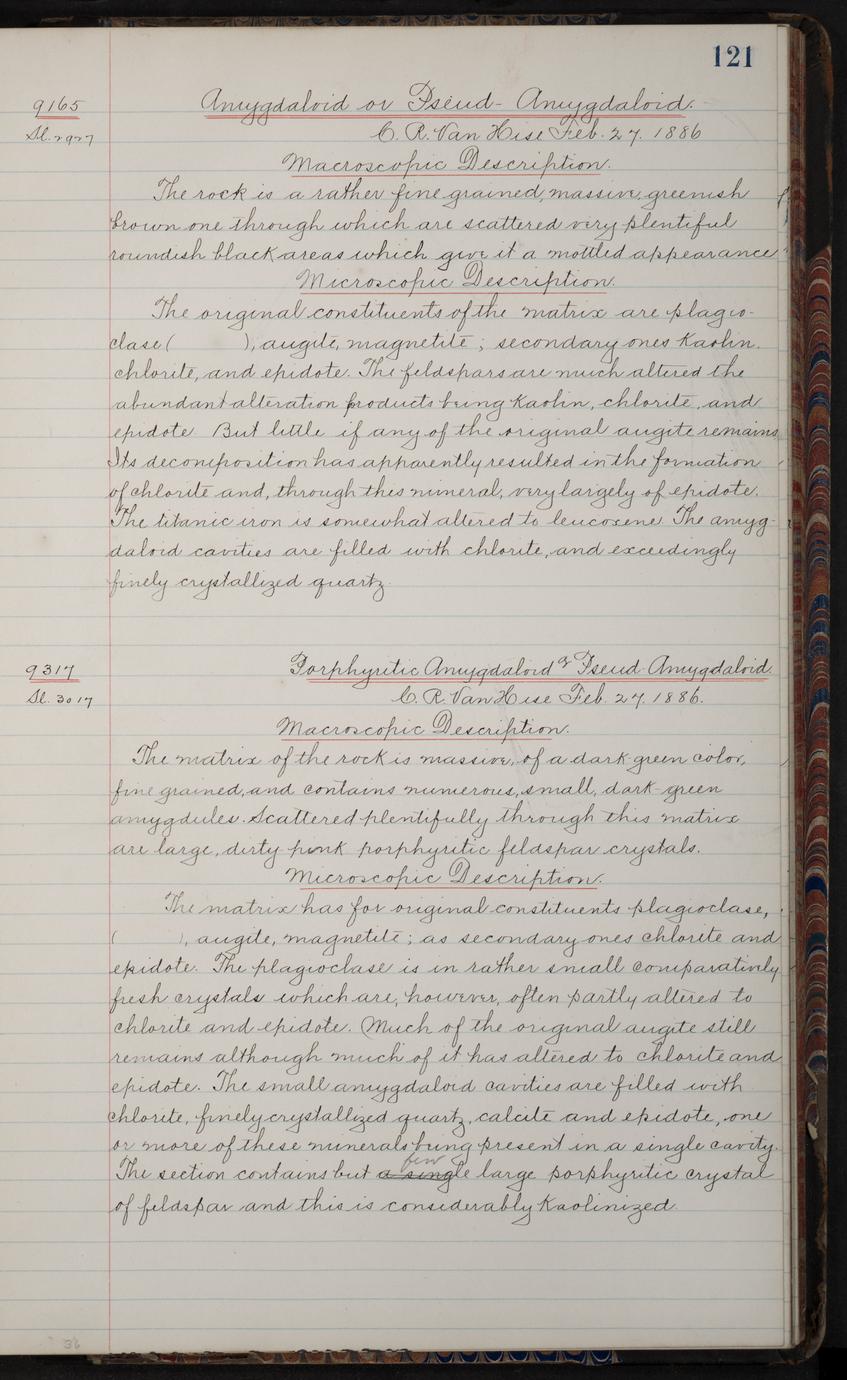 121
9165
Amygdaloid or Pseud-Amygdaloid.
Sl. 2927
C. R. Van Hise Feb. 27. 1886
Macroscopic Description.
The rock is a rather fine grained, massive, greenish
brown one through which are scattered very plentiful
roundish black areas which give it a mottled appearance
Microscopic Description.
The original constituents of the matrix are plagio-
clase ( ), augite, magnetite; secondary ones Kaolin.
chlorite, and epidote. The feldspars are much altered the
abundant alteration products being Kaolin, chlorite, and
epidote But little if any of the original augite remains
Its decomposition has apparently resulted in the formation
of chlorite and, through this mineral, very largely of epidote.
The titanic iron is somewhat altered to leucoxene The amyg-
daloid cavities are filled with chlorite, and exceedingly
finely crystallized quartz.
9317
Porphyritic Amygdaloid or Pseud-Amygdaloid.
Sl. 3017
C. R. Van Hise Feb. 27. 1886.
Macroscopic Description.
The matrix of the rock is massive, of a dark green color,
fine grained, and contains numerous, small, dark-green
amygdules. Scattered plentifully through this matrix
are large, dirty pink porphyritic feldspar crystals.
Microscopic Description.
The matrix has for original constituents plagioclase,
( ), augite, magnetite; as secondary ones chlorite and
epidote. The plagioclase is in rather small comparatively
fresh crystals which are, however, often partly altered to
chlorite and epidote. Much of the original augite still
remains although much of it has altered to chlorite and
epidote. The small amygdaloid cavities are filled with
chlorite, finely crystallized quartz, calcite and epidote, one
or more of these minerals being present in a single cavity.
few
The section contains but a single large porphyritic crystal
of feldspar and this is considerably Kaolinized.
36